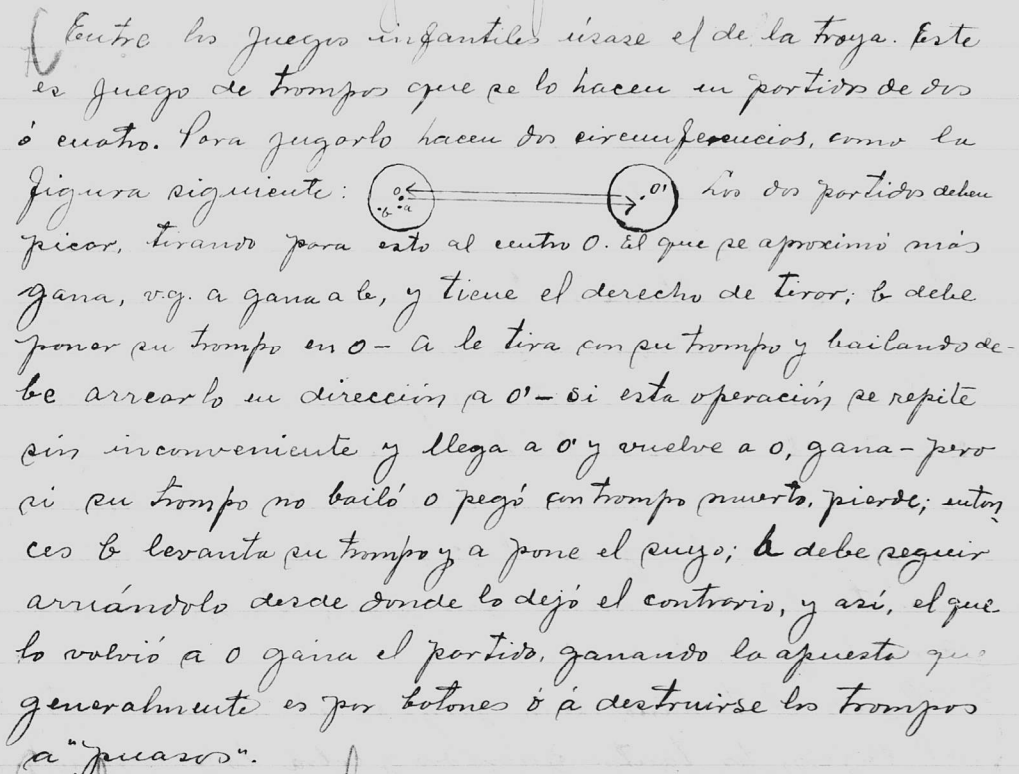 Entre los juegos infantiles úsase el de la troya. Este
es juego de trompos que se lo hacen en partidos de dos
ó cuatro. Para jugarlo hacen dos circunferencias, como la
figura siguiente: o a b o' Los dos partidos deben
picar, tirando para esto al centro O. El que se aproximó más
gana, v.g. a gana a b, y tiene el derecho de tirar; b debe
poner su trompo en o - a le tira con su trompo y bailando de-
be arrearlo en dirección a o' - si esta operación se repite
sin inconveniente y llega a o' y vuelve a o, gana - pero
si su trompo no bailó o pegó con trompo muerto, pierde; enton-
ces b levanta su trompo y a pone el suyo; b debe seguir
arriándolo desde donde lo dejó el contrario, y así, el que
lo volvió a o gana el partido, ganando la apuesta que
generalmente es por botones ó á destruirse los trompos
a "puasos".